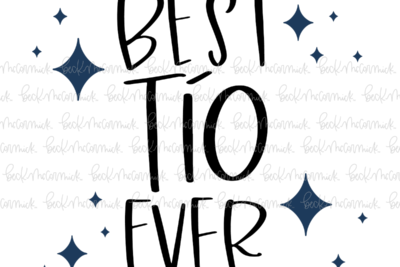 BEST
TÍO
EVER